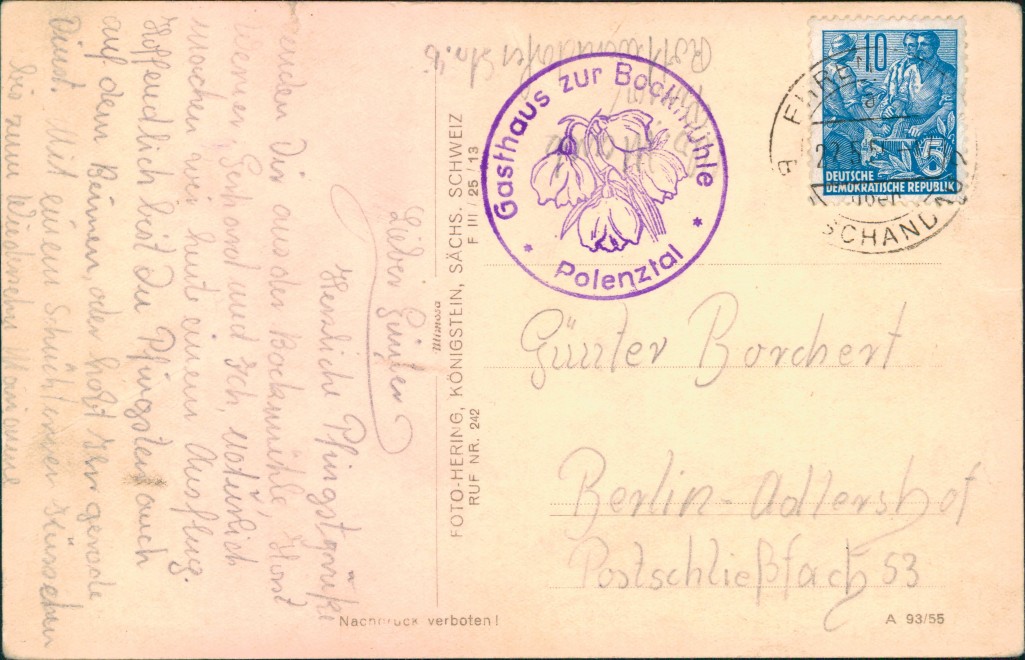 Lieber Günter
Herzliche Pfingstgrüße
senden Dir aus der Bockmühle, Horst
Werner, Gerhard und Ich, natürlich
machen wir heute einen Ausflug.
Hoffendlich bist Du Pfingsten auch
auf dem Beinen, oder habt Ihr gerade
Dinst. Mit einem Schüchternen Küsschen
bis zum Wiedersehn Marianne
Gasthaus zur Bockmühle
* Polenztal *
10
5
DEUTSCHE
DEMOKRATISCHE REPUBLIK
über
SCHANDAU
Günter Borchert
Berlin-Adlershof
Postschließfach 53
mimosa
FOTO-HERING, KÖNIGSTEIN, SÄCHS. SCHWEIZ
RUF NR. 242
F III / 25 / 13
Nachdruck verboten!
A 93/55